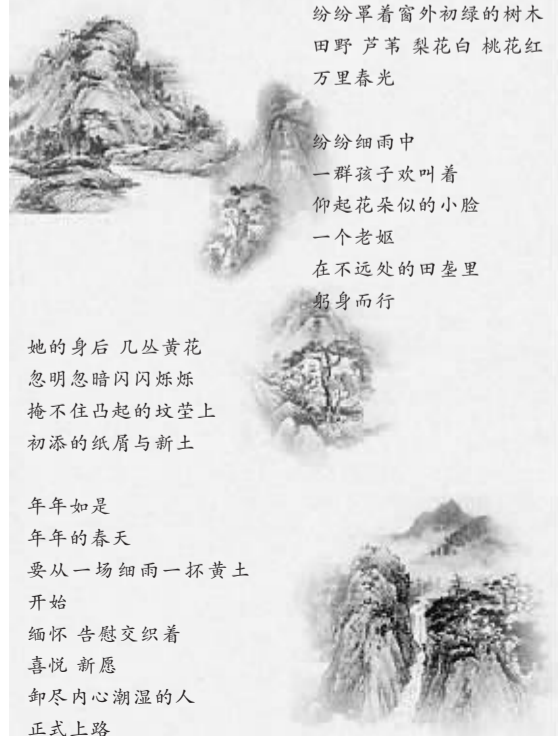 纷纷罩着窗外初绿的树木
田野 芦苇 梨花白 桃花红
万里春光
纷纷细雨中
一群孩子欢叫着
仰起花朵似的小脸
一个老妪
在不远处的田垄里
躬身而行
她的身后 几丛黄花
忽明忽暗闪闪烁烁
掩不住凸起的坟茔上
初添的纸屑与新土
年年如是
年年的春天
要从一场细雨一抔黄土
开始
缅怀 告慰交织着
喜悦 新愿
卸尽内心潮湿的人
正式上路